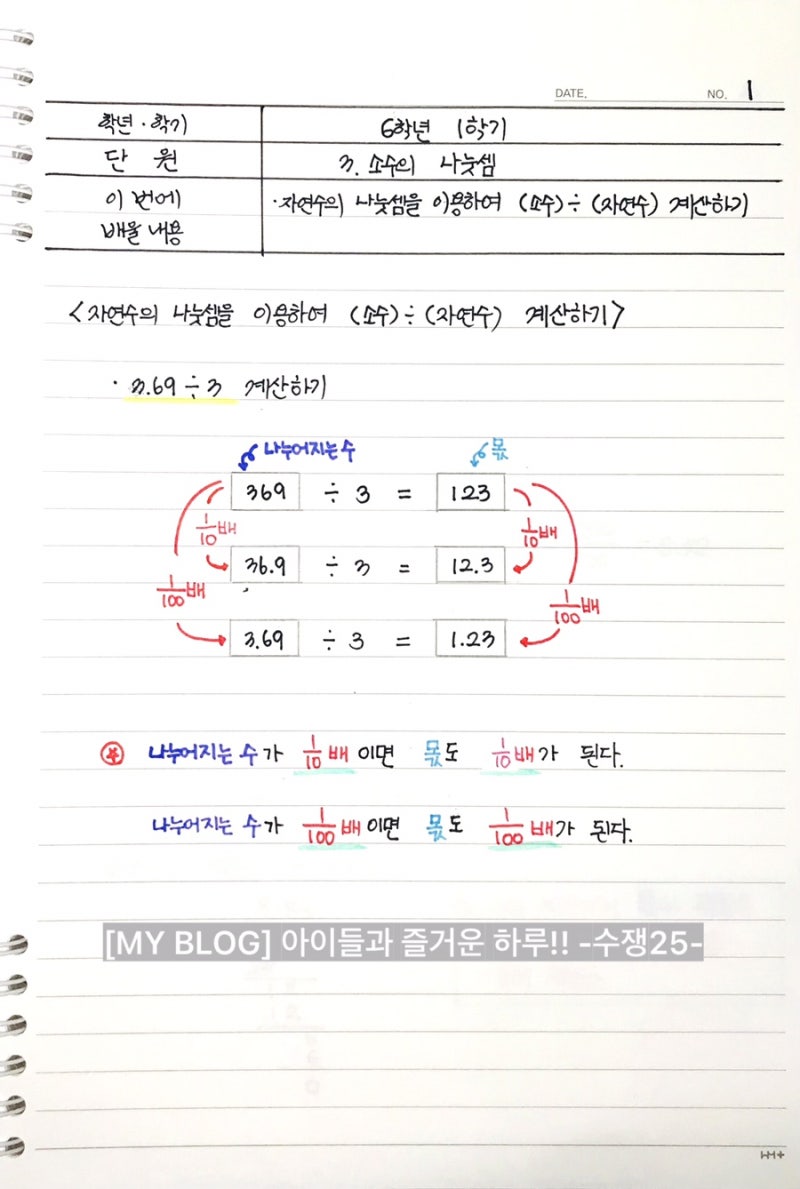 DATE. NO. 1
학년·학기 6학년 1학기
단 원 3. 소수의 나눗셈
이 번에 ·자연수의 나눗셈을 이용하여 (소수)÷(자연수) 계산하기
배울 내용
<자연수의 나눗셈을 이용하여 (소수)÷(자연수) 계산하기>
· 3.69÷3 계산하기
나누어지는 수 몫
369 ÷ 3 = 123
1/10배 1/10배
36.9 ÷ 3 = 12.3
1/100배 1/100배
3.69 ÷ 3 = 1.23
나누어지는 수가 1/10배이면 몫도 1/10배가 된다.
나누어지는 수가 1/100배이면 몫도 1/100배가 된다.
[MY BLOG] 아이들과 즐거운 하루!! -수쟁25-